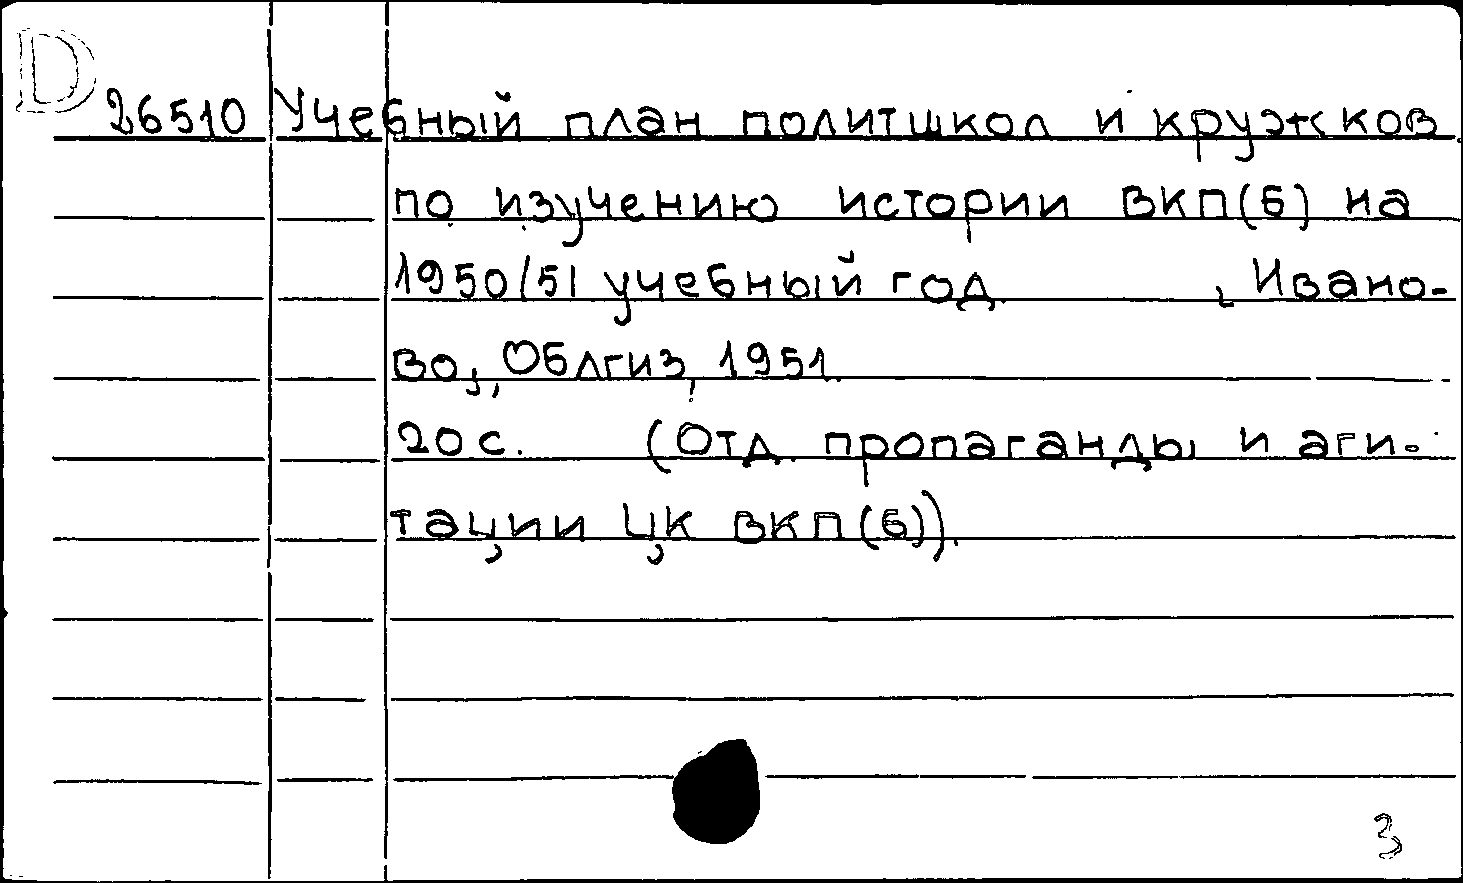 D
26510 Учебный план политшкол и кружков
по изучению истории ВКП(б) на
1950/51 учебный год. , Ивано-
во, Облгиз, 1951.
20 с. (Отд. пропаганды и аги-
тации ЦК ВКП(б)).
3